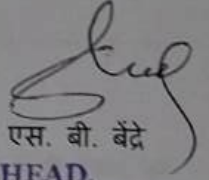 एस. बी. बेंद्रे
HEAD,